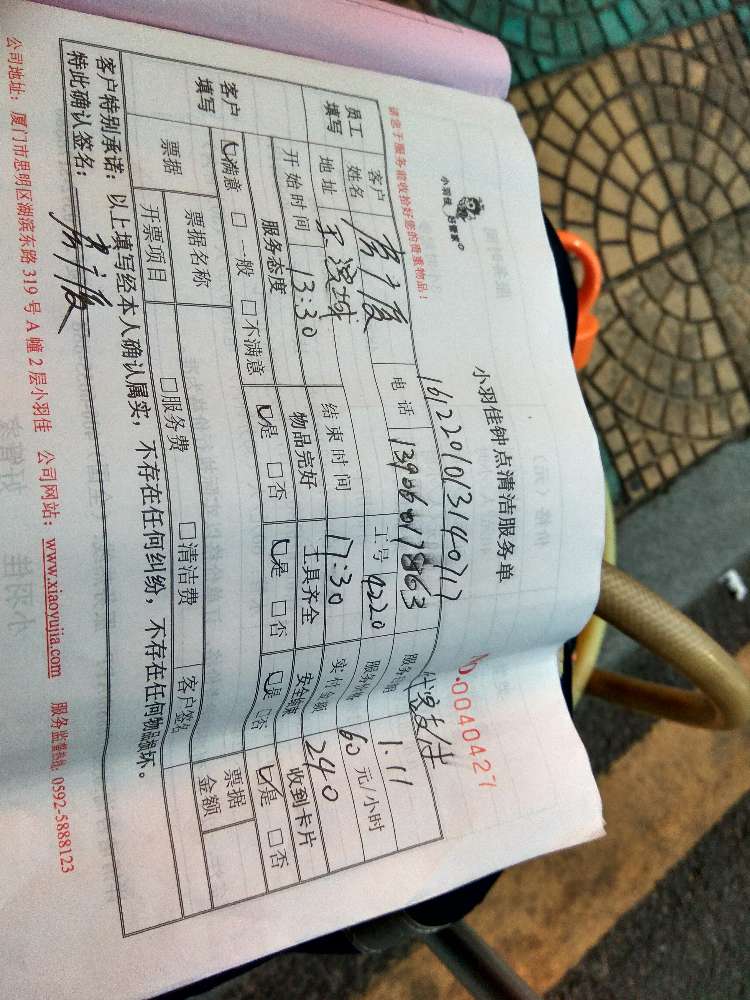 小羽佳 好管家
小羽佳钟点清洁服务单
16122010131407171
No.0040427
请您于服务前收拾好您的贵重物品！
员工填写 客户姓名 电话 服务日期 1.11
地址 工号 4220 服务价格 60 元/小时
开始时间 13:30 结束时间 17:30 实付金额 240
客户填写 服务态度 物品完好 工具齐全 安全结束 收到卡片
满意 □一般 □不满意 是 □否 是 □否 是 □否 是 □否
票据 票据名称 票据金额
开票项目 □服务费 □清洁费 客户签名
客户特别承诺：以上填写经本人确认属实，不存在任何纠纷，不存在任何物品损坏。
特此确认签名：
公司地址：厦门市思明区湖滨东路 319 号 A 幢 2 层小羽佳 公司网站：www.xiaoyujia.com 服务监督热线：0592-5888123